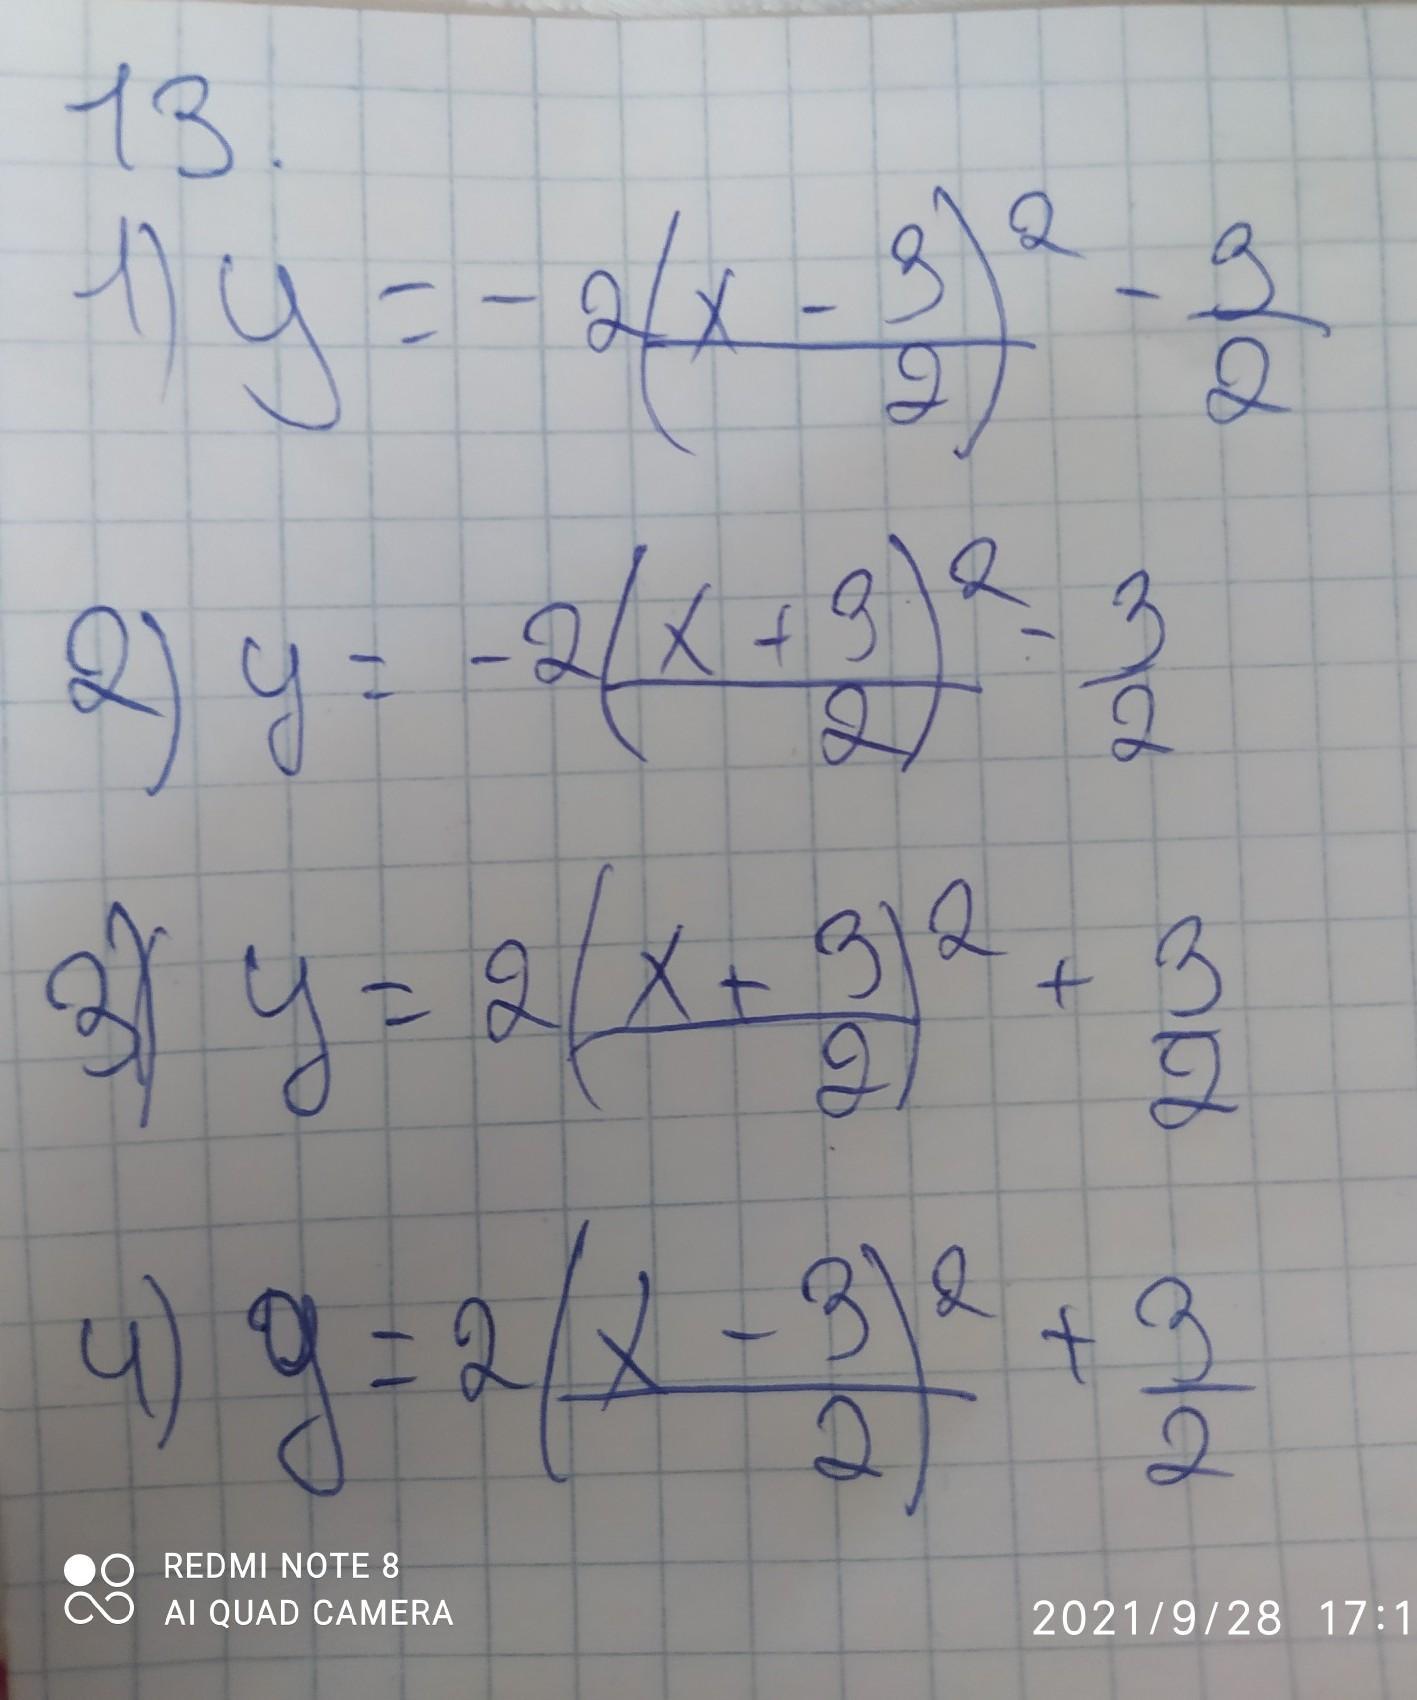 13.
1) y = -2((x - 3)/2)² - 3/2
2) y = -2((x + 3)/2)² - 3/2
3) y = 2((x + 3)/2)² + 3/2
4) y = 2((x - 3)/2)² + 3/2
REDMI NOTE 8
AI QUAD CAMERA
2021/9/28 17:1